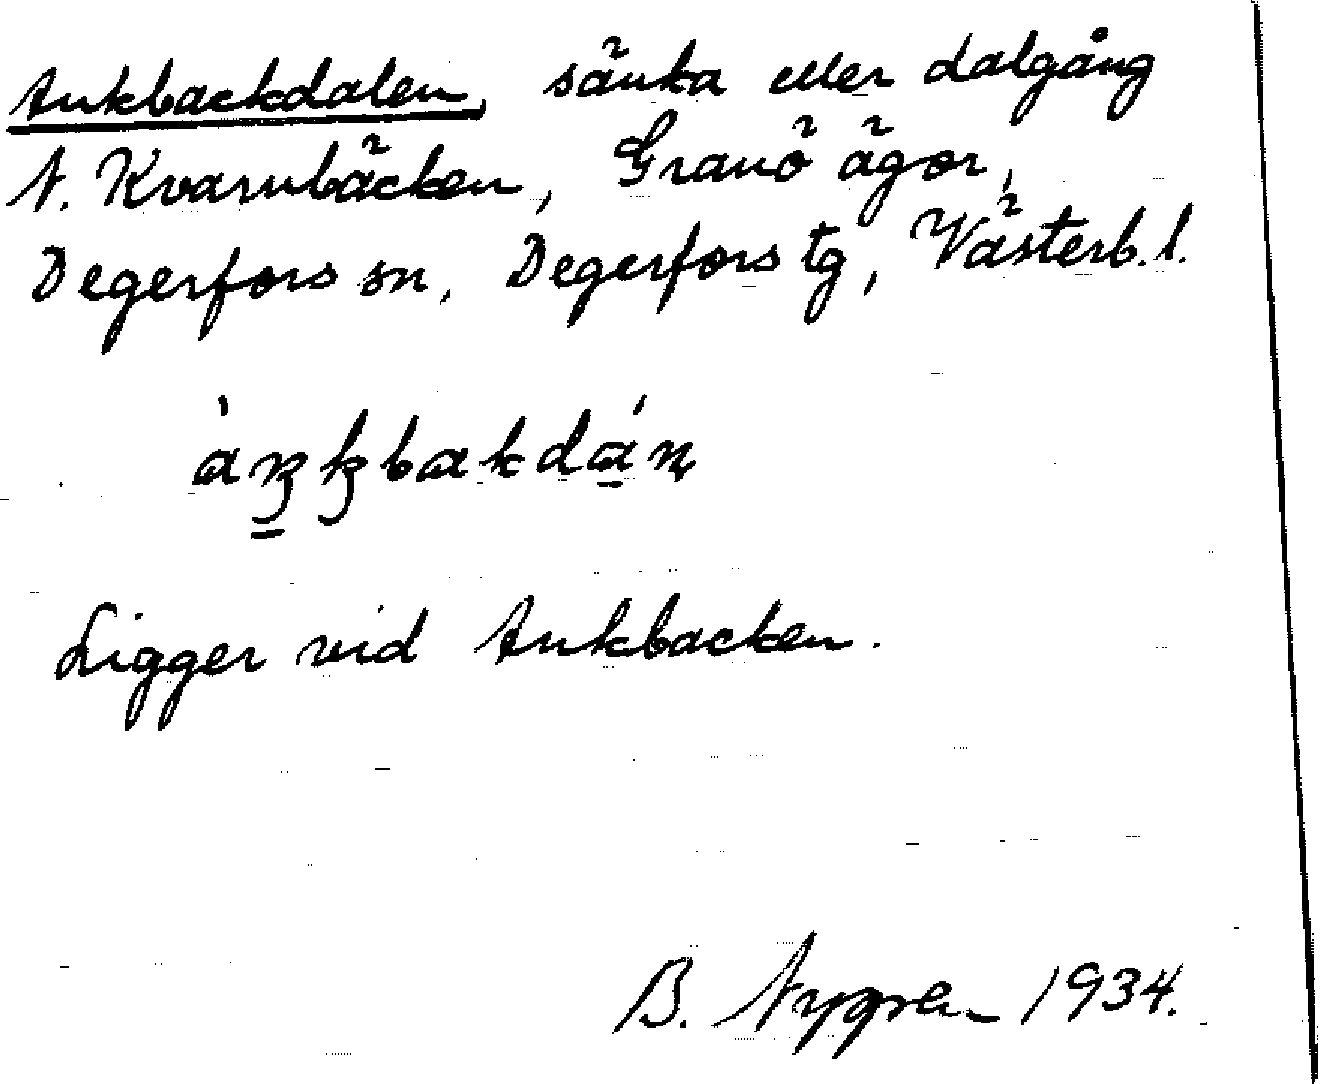 Ankbackdalen, sänka eller dalgång
N. Kvarnbäcken, Granö ägor,
Degerfors sn, Degerfors tg, Västerb. l.
Ligger vid Ankbacken.
B. Nygren 1934.